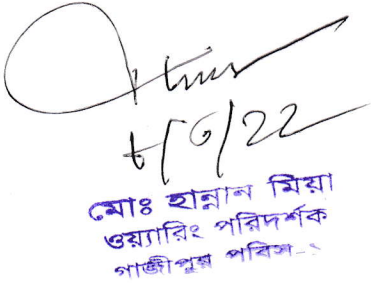 ৮/৫/22
মোঃ হান্নান মিয়া
ওয়্যারিং পরিদর্শক
গাজীপুর পবিস-১